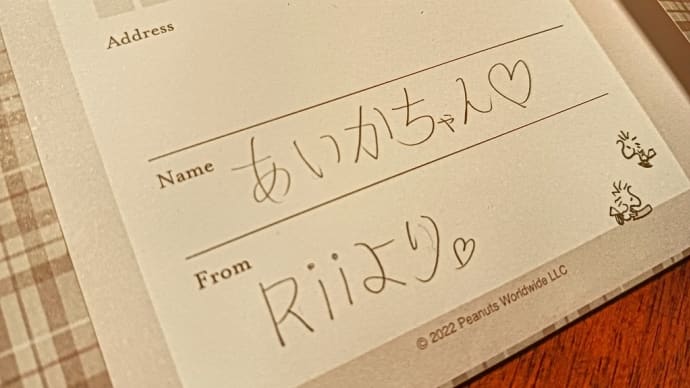 Address
Name あいかちゃん♡
From Riiより♡
© 2022 Peanuts Worldwide LLC